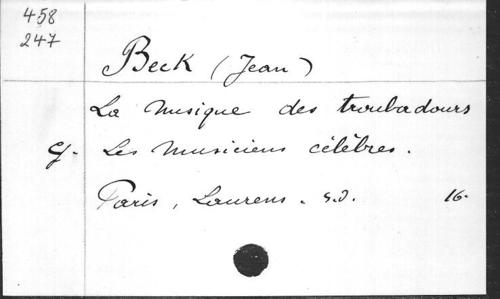 458
247
Beck (Jean)
La Musique des troubadours
Les Musiciens célèbres.
Paris, Laurens. s.d. 16-